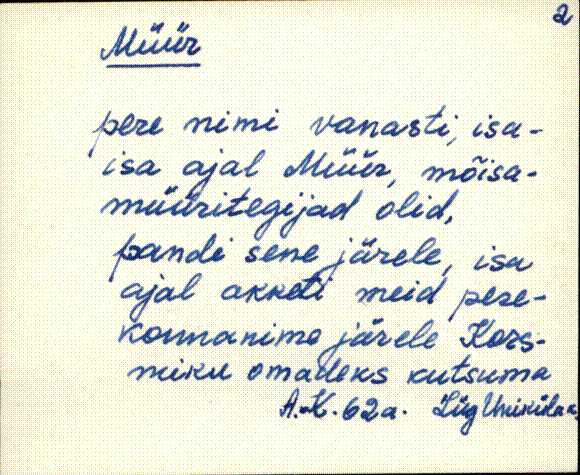 2
Müür
pere nimi vanasti, isa-
isa ajal Müür, mõisa-
müüritegijad olid,
pandi sene järele, isa
ajal akketi meid pere-
konnanime järele Kors-
miku omadeks kutsuma
A.K. 62a. Lüg Uniküla k.